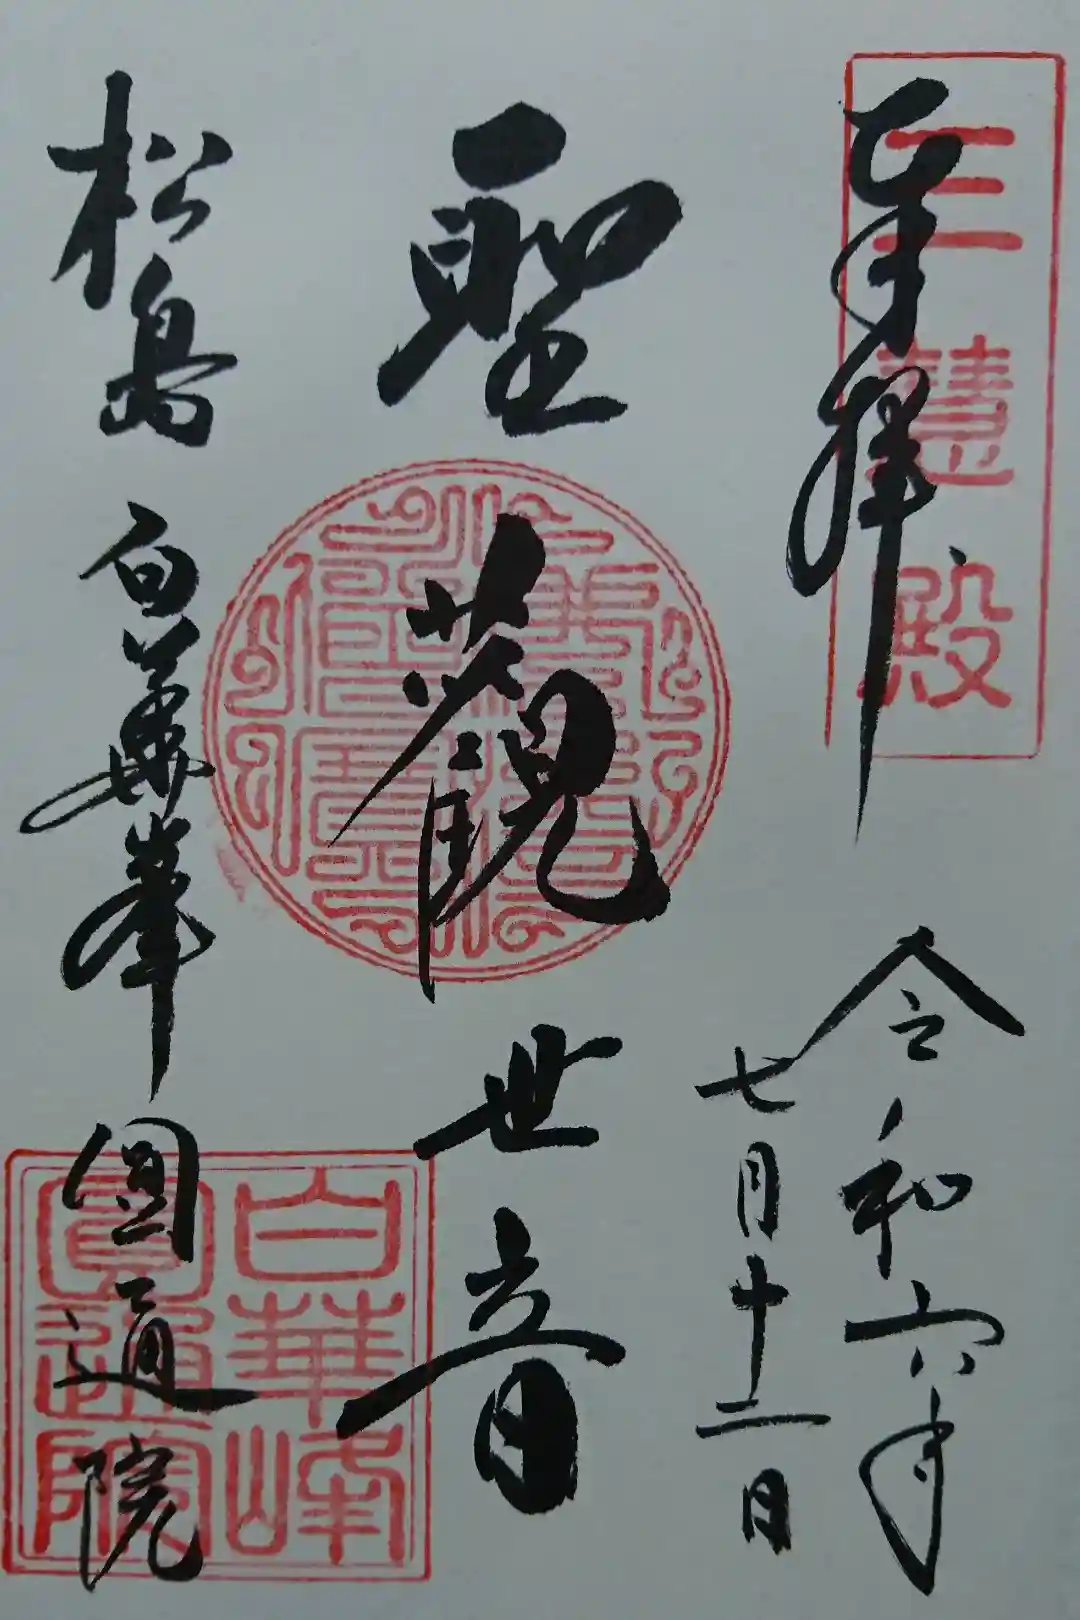 奉拝
三慧殿
令和六年
七月十二日
聖観世音
松島
白華峯圓通院
白華峰
圓通院